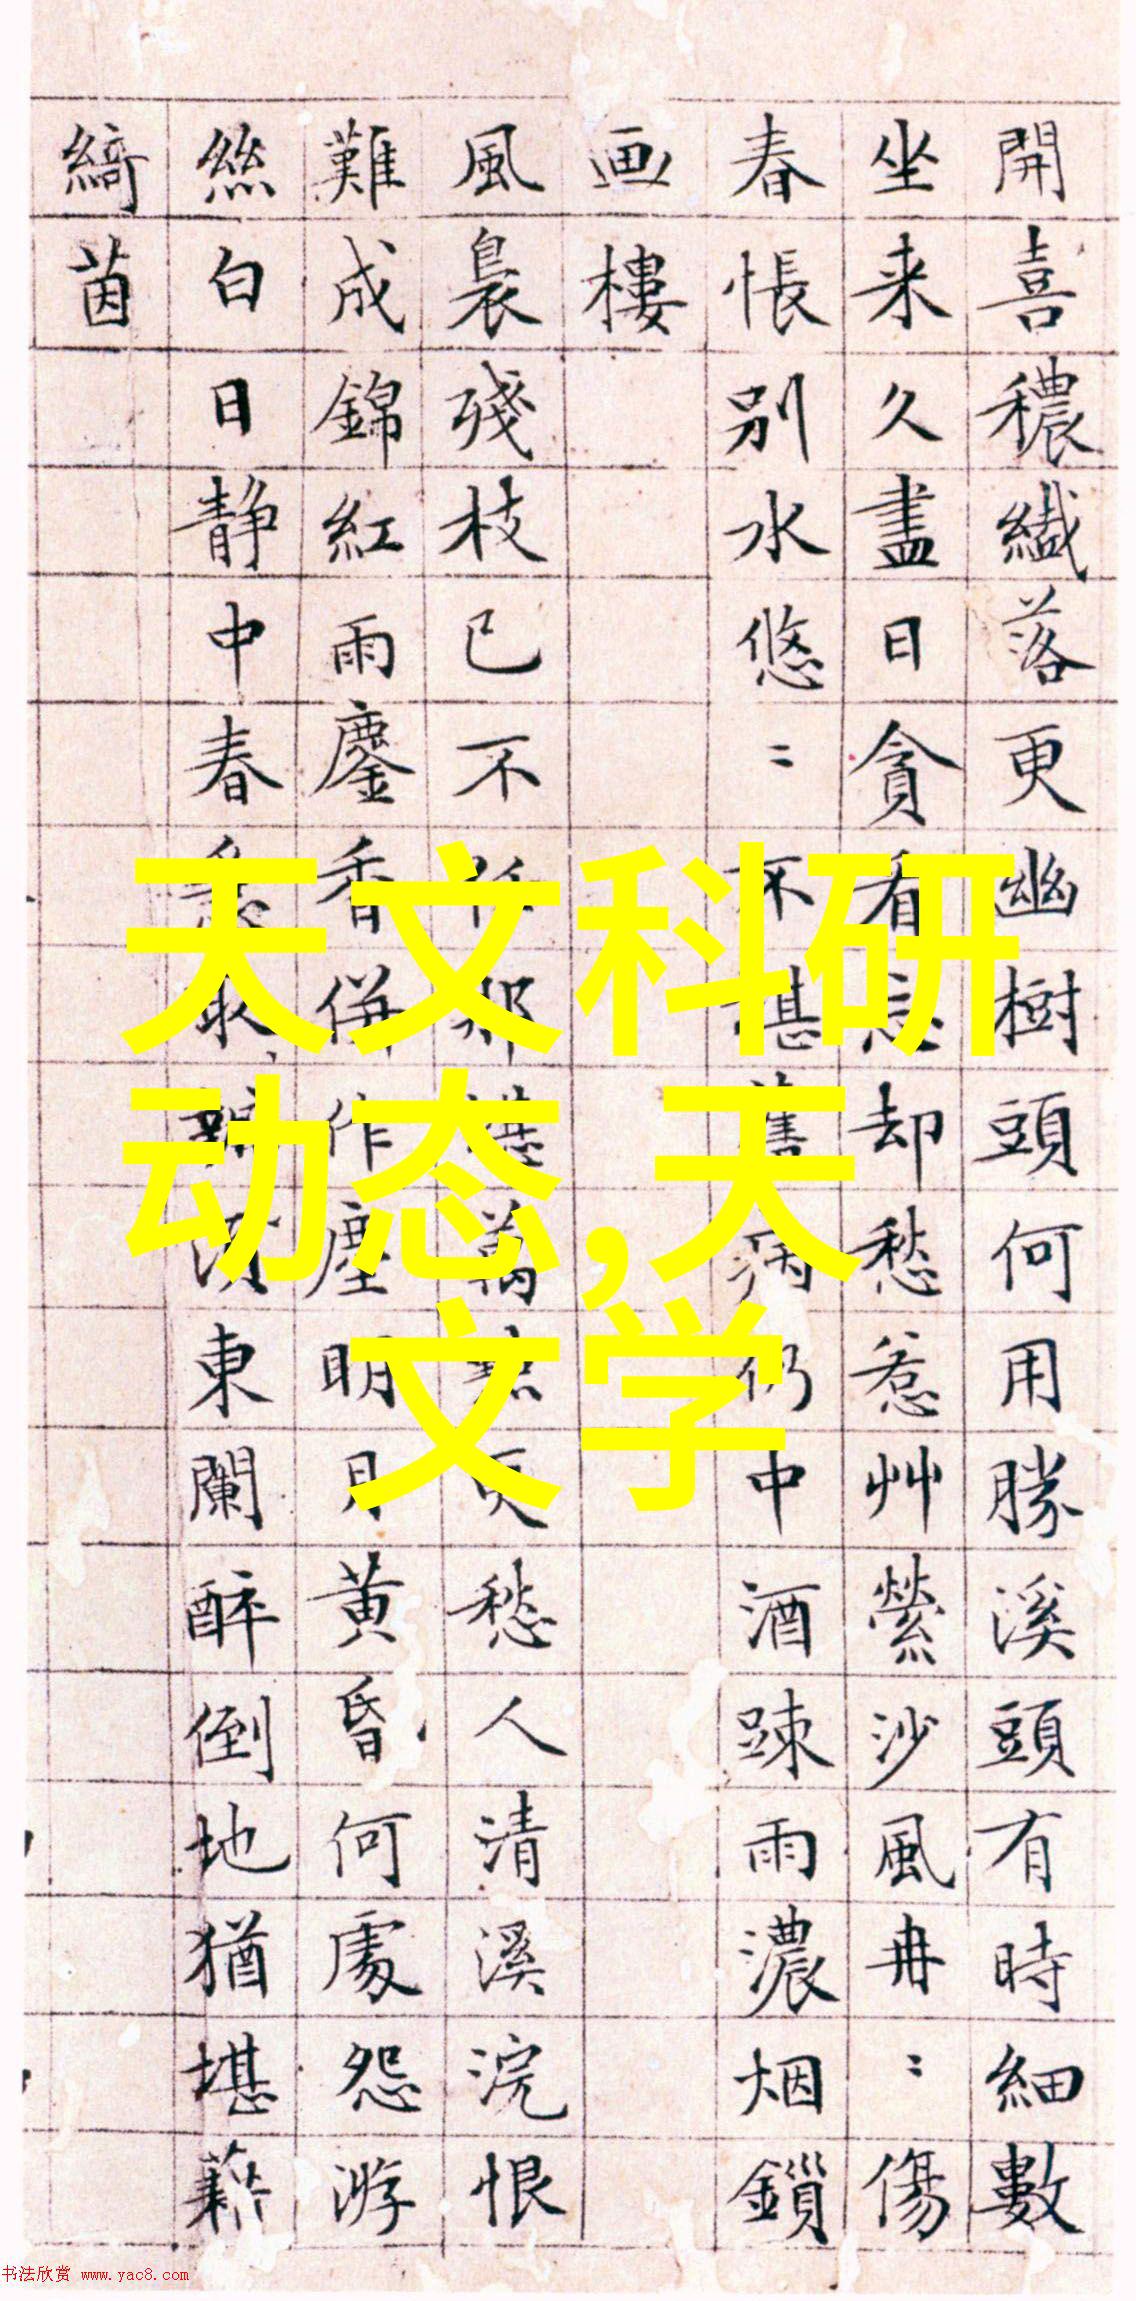 開喜穠纎落更幽樹頭何用勝溪頭有時細數
坐来久盡日貪看忘却愁惹艸縈沙風冉〻傷
春悵别水悠〻不堪舊病仍中酒踈雨濃烟鎖
画樓
風裊殘枝已不任那堪萬點更愁人清溪浣恨
難成錦紅雨鏖香併作塵明月黄昏何處怨游
絲白日静中春東闌醉倒地猶堪藉
綺茵
天文科研
动态,天
文学
书法欣赏 www.yac8.com